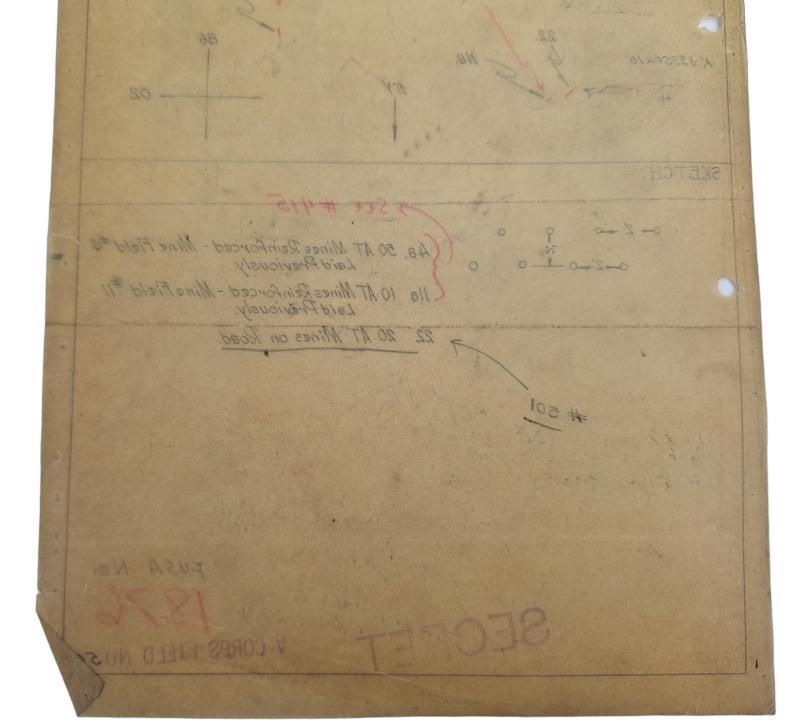 86
22
11a
02
EY
SKETCH:
See #415
4a. 50 AT Mines Reinforced - Mine Field #4
Laid Previously
11a 10 AT Mines Reinforced - Mine Field #11
Laid Previously
22 20 AT Mines on Road
#501
FUSA No.
1876
SECRET
V CORPS FIELD NO